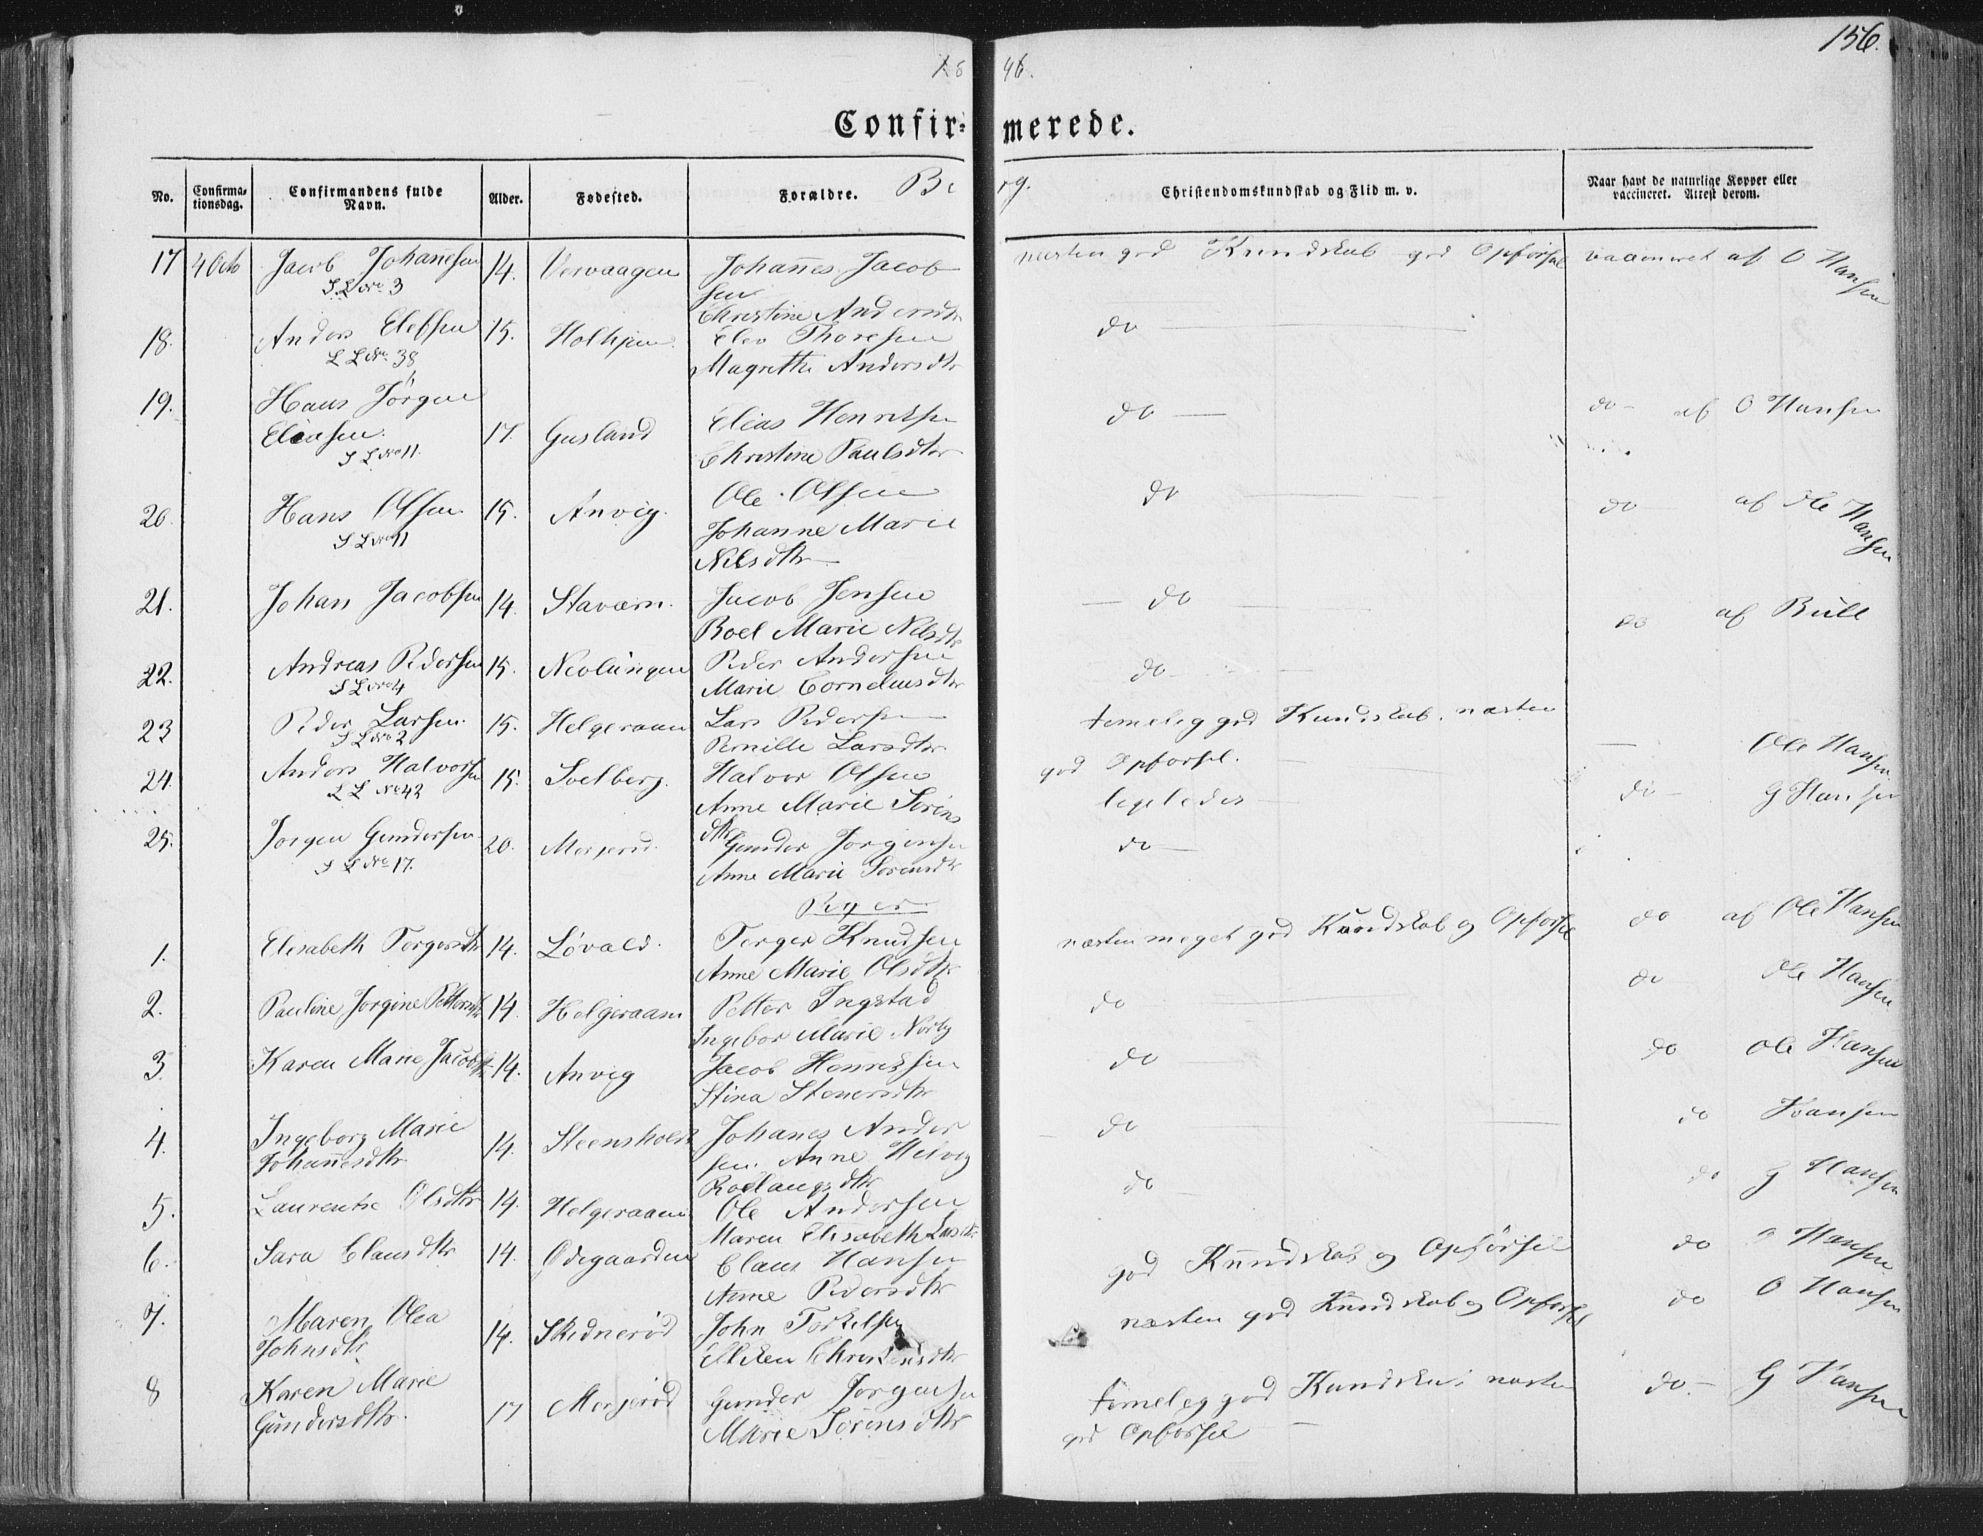 156.
18 46.
Confir- merede.
Berg.
No. Confirmationsdag. Confirmandens fulde Navn. Alder. Fødested. Forældre. Christendomskundskab og Flid m. v. Naar havt de naturlige Kopper eller vaccineret. Attest derom.
17 4 Octo Jacob Johañesen 14. Vervaagen Johañes Jacob næsten god Kundskab god Opførsel vaccineret af O Hansen
S L No 3 sen
Christine Andersdtr
18. Anders Elefsen 15. Holhjem Elev Thoresen do
L L No 38 Magrethe Andersdtr
19. Hans Jörgen
Eliasen 17. Gusland Elias Henriksen do do af O Hansen
S L No 11. Christine Paulsdtr
20. Hans Olsen 15. Anvig. Ole Olsen do do af Ole Hansen
S L No 11 Johanne Marie
Nilsdtr
21. Johan Jacobsen 14. Staværn. Jacob Jensen do do af Bull
Boel Marie Nilsdtr
22. Andreas Pedersen 15. Nevlungen Peder Andersen do
S L No 4 Marie Corneliusdtr
23 Peder Larsen 15. Helgeraaen Lars Pedersen temelig god Kundskab. næsten
S L No 2 Pernille Larsdtr god Opførsel. Ole Hansen
24. Anders Halvorsen 15. Solberg. Halvor Olsen ligeledes do G Hansen
L L No 42 Anne Marie Sörens
dtr
25. Jorgen Gundersen 20. Merjerod. Gunder Jorgensen do
S L No 17. Anne Marie Sorensdtr
Piger
1. Elisabeth Torgersdtr 14. Lövald. Torger Knudsen næsten meget god Kundskab og Opførsel do af Ole Hansen
Anne Marie Olsdtr
2. Pauline Jorgine Pettersdtr 14. Helgeraaen Petter Ingstad do do Ole Hansen
Ingebor Marie Norby
3. Karen Marie Jacobsdtr 14. Anvig Jacob Henriksen do do Ole Hansen
Stina Stenersdtr
4. Ingeborg Marie 14. Steensholdt Johanes Ander do do Hansen
Johañesdtr sen. Anne Helvig
Roelaugsdtr
5. Laurentse Olsdtr 14. Helgeraaen Ole Andersen do do G Hansen
Maren Elisabeth Larsdtr
6. Sara Clausdtr 14. Odegaarden Claus Hansen god Kundskab og Opførsel do O Hansen
Anne Pedersdtr
7. Maren Olea 14. Skidneröd John Torkelsen næsten god Kundskab og Opførsel do O Hansen
Johnsdtr Elleken Christensdtr
8 Karen Marie 17 Merjeröd Gunder Jorgensen temelig god Kundskab næsten do. G Hansen
Gundersdtr. Marie Sörensdtr god Opførsel